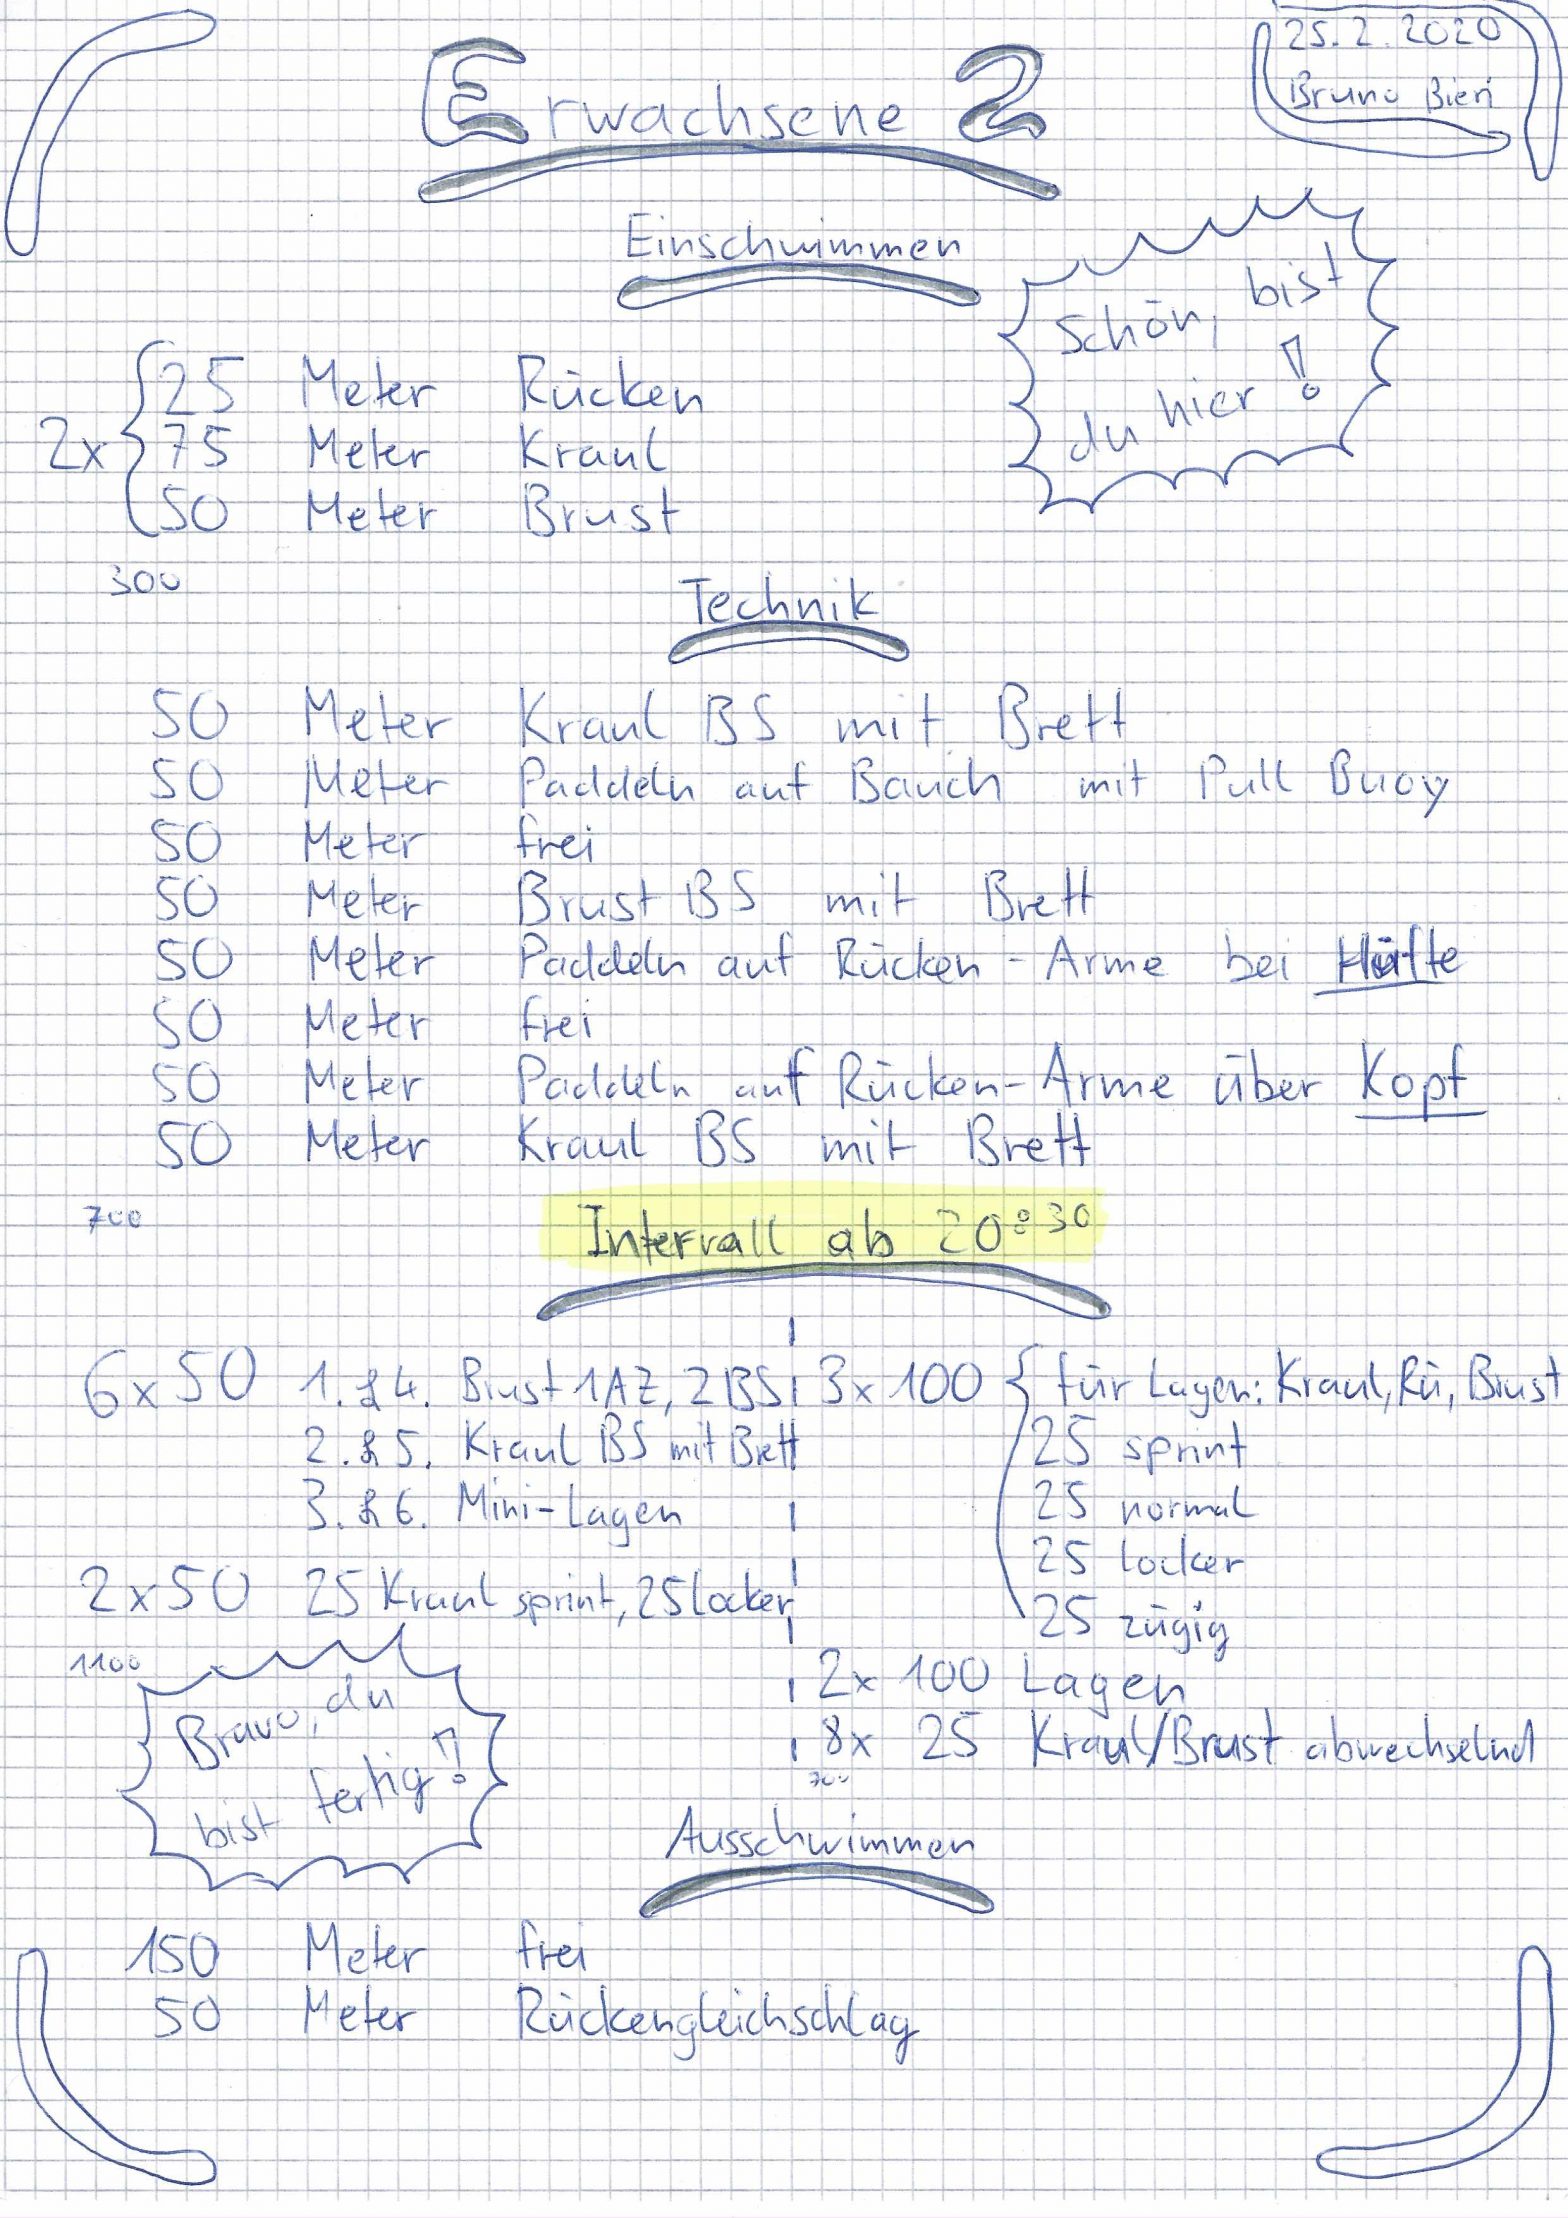 25.2.2020
Bruno Bieri
Erwachsene 2
Einschwimmen
Schön, bist
du hier!
2x
25 Meter Rücken
75 Meter Kraul
50 Meter Brust
300
Technik
50 Meter Kraul BS mit Brett
50 Meter Paddeln auf Bauch mit Pull Buoy
50 Meter frei
50 Meter Brust BS mit Brett
50 Meter Paddeln auf Rücken - Arme bei Hüfte
50 Meter frei
50 Meter Paddeln auf Rücken - Arme über Kopf
50 Meter Kraul BS mit Brett
700
Intervall ab 20:30
6x50 1. & 4. Brust 1AZ, 2BS
2. & 5. Kraul BS mit Brett
3. & 6. Mini-Lagen
2x50 25 Kraul sprint, 25 locker
1100
3x100 für Lagen: Kraul, Rü, Brust
25 sprint
25 normal
25 locker
25 zügig
2x 100 Lagen
8x 25 Kraul/Brust abwechselnd
700
Bravo, du
bist fertig!
Ausschwimmen
150 Meter frei
50 Meter Rückengleichschlag